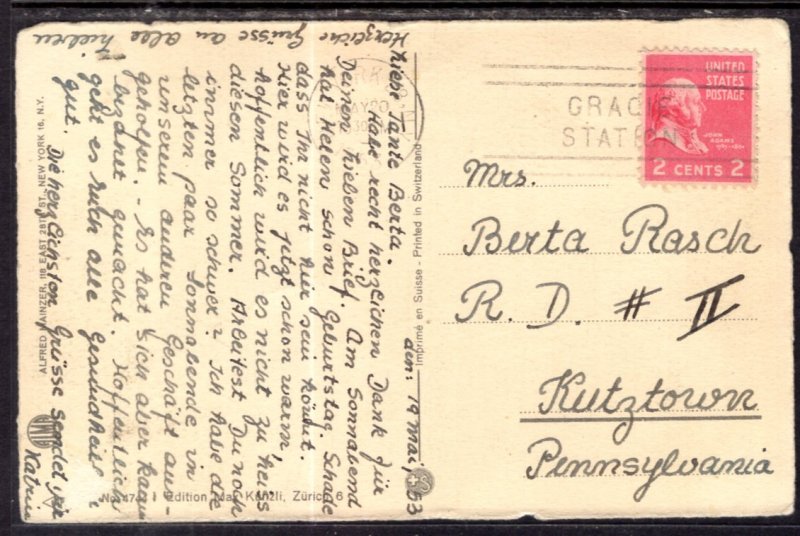 den: 19 Mai, 53
Liebe Tante Berta.
Habe recht herzlichen Dank für
Deinen lieben Brief. Am Sonnabend
hat Helen schon Geburtstag. Schade
dass Ihr nicht hier sein könnt.
Hier wird es jetzt schon warm,
hoffentlich wird es nicht zu heiss
diesen Sommer. Arbeitest Du noch
immer so schwer? Ich habe die
letzten paar Sonnabende in
unserem anderen Geschäft aus-
geholfen. - Es hat sich aber kaum
bezahlt gemacht. Hoffentlich
geht es Euch alle gesundheitlich
gut. Die herzlichsten Grüsse sendet Dir
Katrin
Herzliche Grüsse an alle Lieben
ALFRED MAINZER, 118 EAST 28th ST., NEW YORK 16, N.Y.
No. 474 Edition Max Künzli, Zürich 6
Imprimé en Suisse - Printed in Switzerland
MAY 20
GRACIE
STATION
UNITED
STATES
POSTAGE
JOHN
ADAMS
1797-1801
2 CENTS 2
Mrs.
Berta Rasch
R. D. # II
Kutztown
Pennsylvania